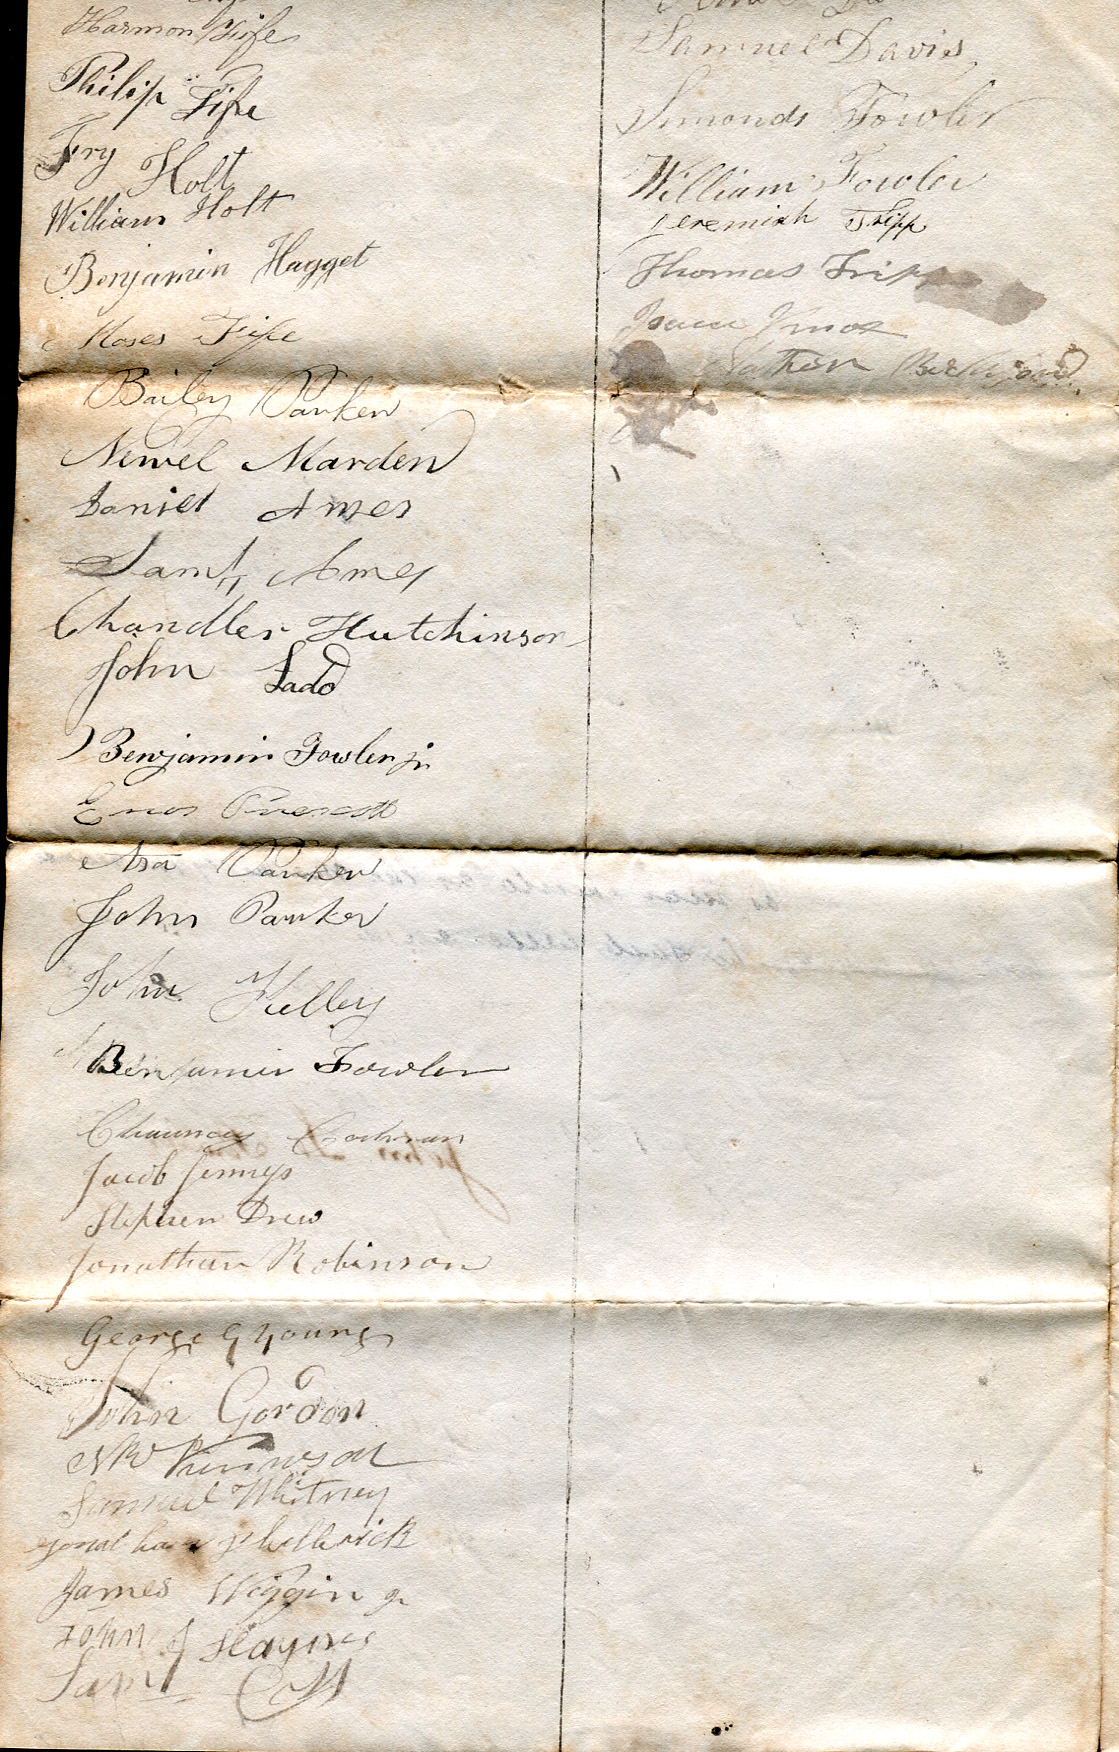 Harmon Fife
Philip Fife
Fry Holt
William Holt
Benjamin Hagget
Moses Fife
Bailey Parker
Newel Marden
Daniel Ames
Saml Ames
Chandler Hutchinson
John Ladd
Benjamin Fowler jr
Enos Prescott
Asa Parker
John Parker
John Kelley
Benjamin Fowler
Chauncey Cochran
Jacob Jennys
Stephen Drew
Jonathan Robinson
George G Young
John Gordon
Samuel Whitney
James Wiggin jr
John J Haynes
Saml
Samuel Davis
Simonds Fowler
William Fowler
Jeremiah Tripp
Thomas Tripp
Isaac Knox
Nathan Bickford